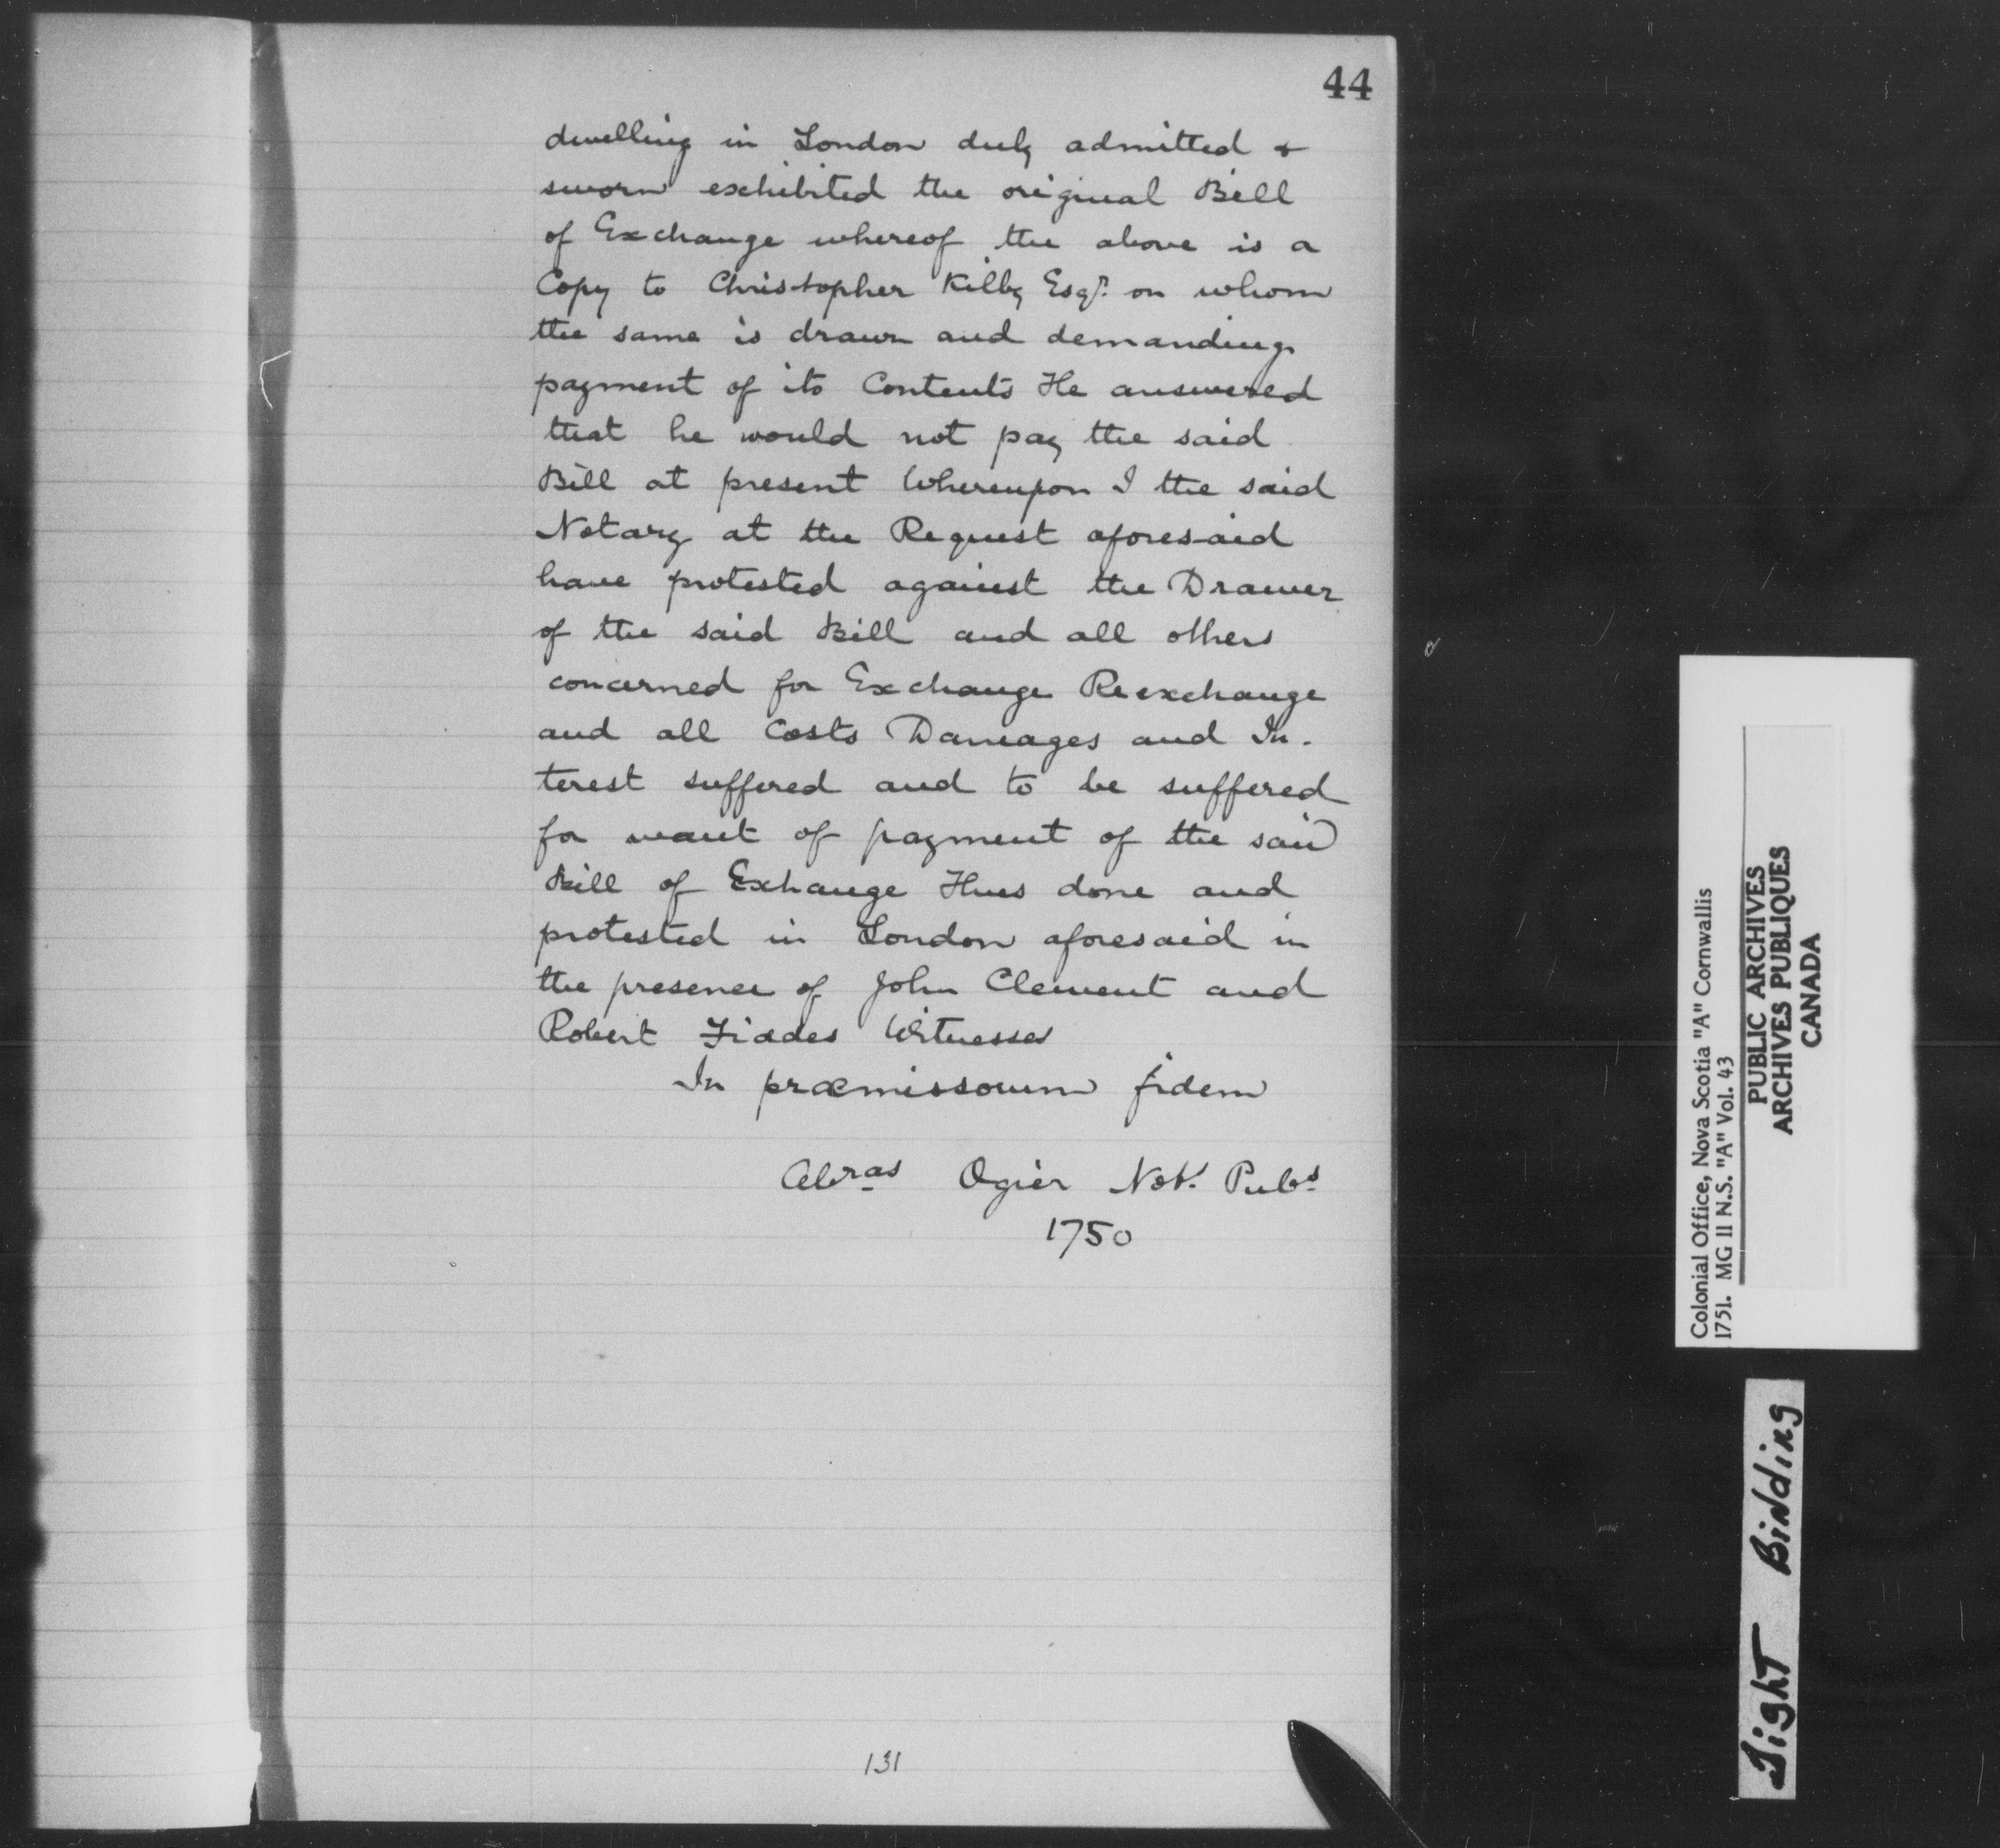 44
dwelling in London duly admitted &
sworn exhibited the original Bill
of Exchange whereof the above is a
Copy to Christopher Kilby Esqr. on whom
the same is drawn and demanding
payment of its Contents He answered
that he would not pay the said
Bill at present Whereupon I the said
Notary at the Request aforesaid
have protested against the Drawer
of the said Bill and all others
concerned for Exchange Reexchange
and all Costs Damages and In-
terest suffered and to be suffered
for want of payment of the said
Bill of Exhange Thus done and
protested in London aforesaid in
the presence of John Clement and
Robert Witnesses
In præmissorum fidem
Abras Ogier Not. Pubs
1750
131
Colonial Office, Nova Scotia "A" Cornwallis
1751. MG 11 N.S. "A" Vol. 43
PUBLIC ARCHIVES
ARCHIVES PUBLIQUES
CANADA
Tight Binding